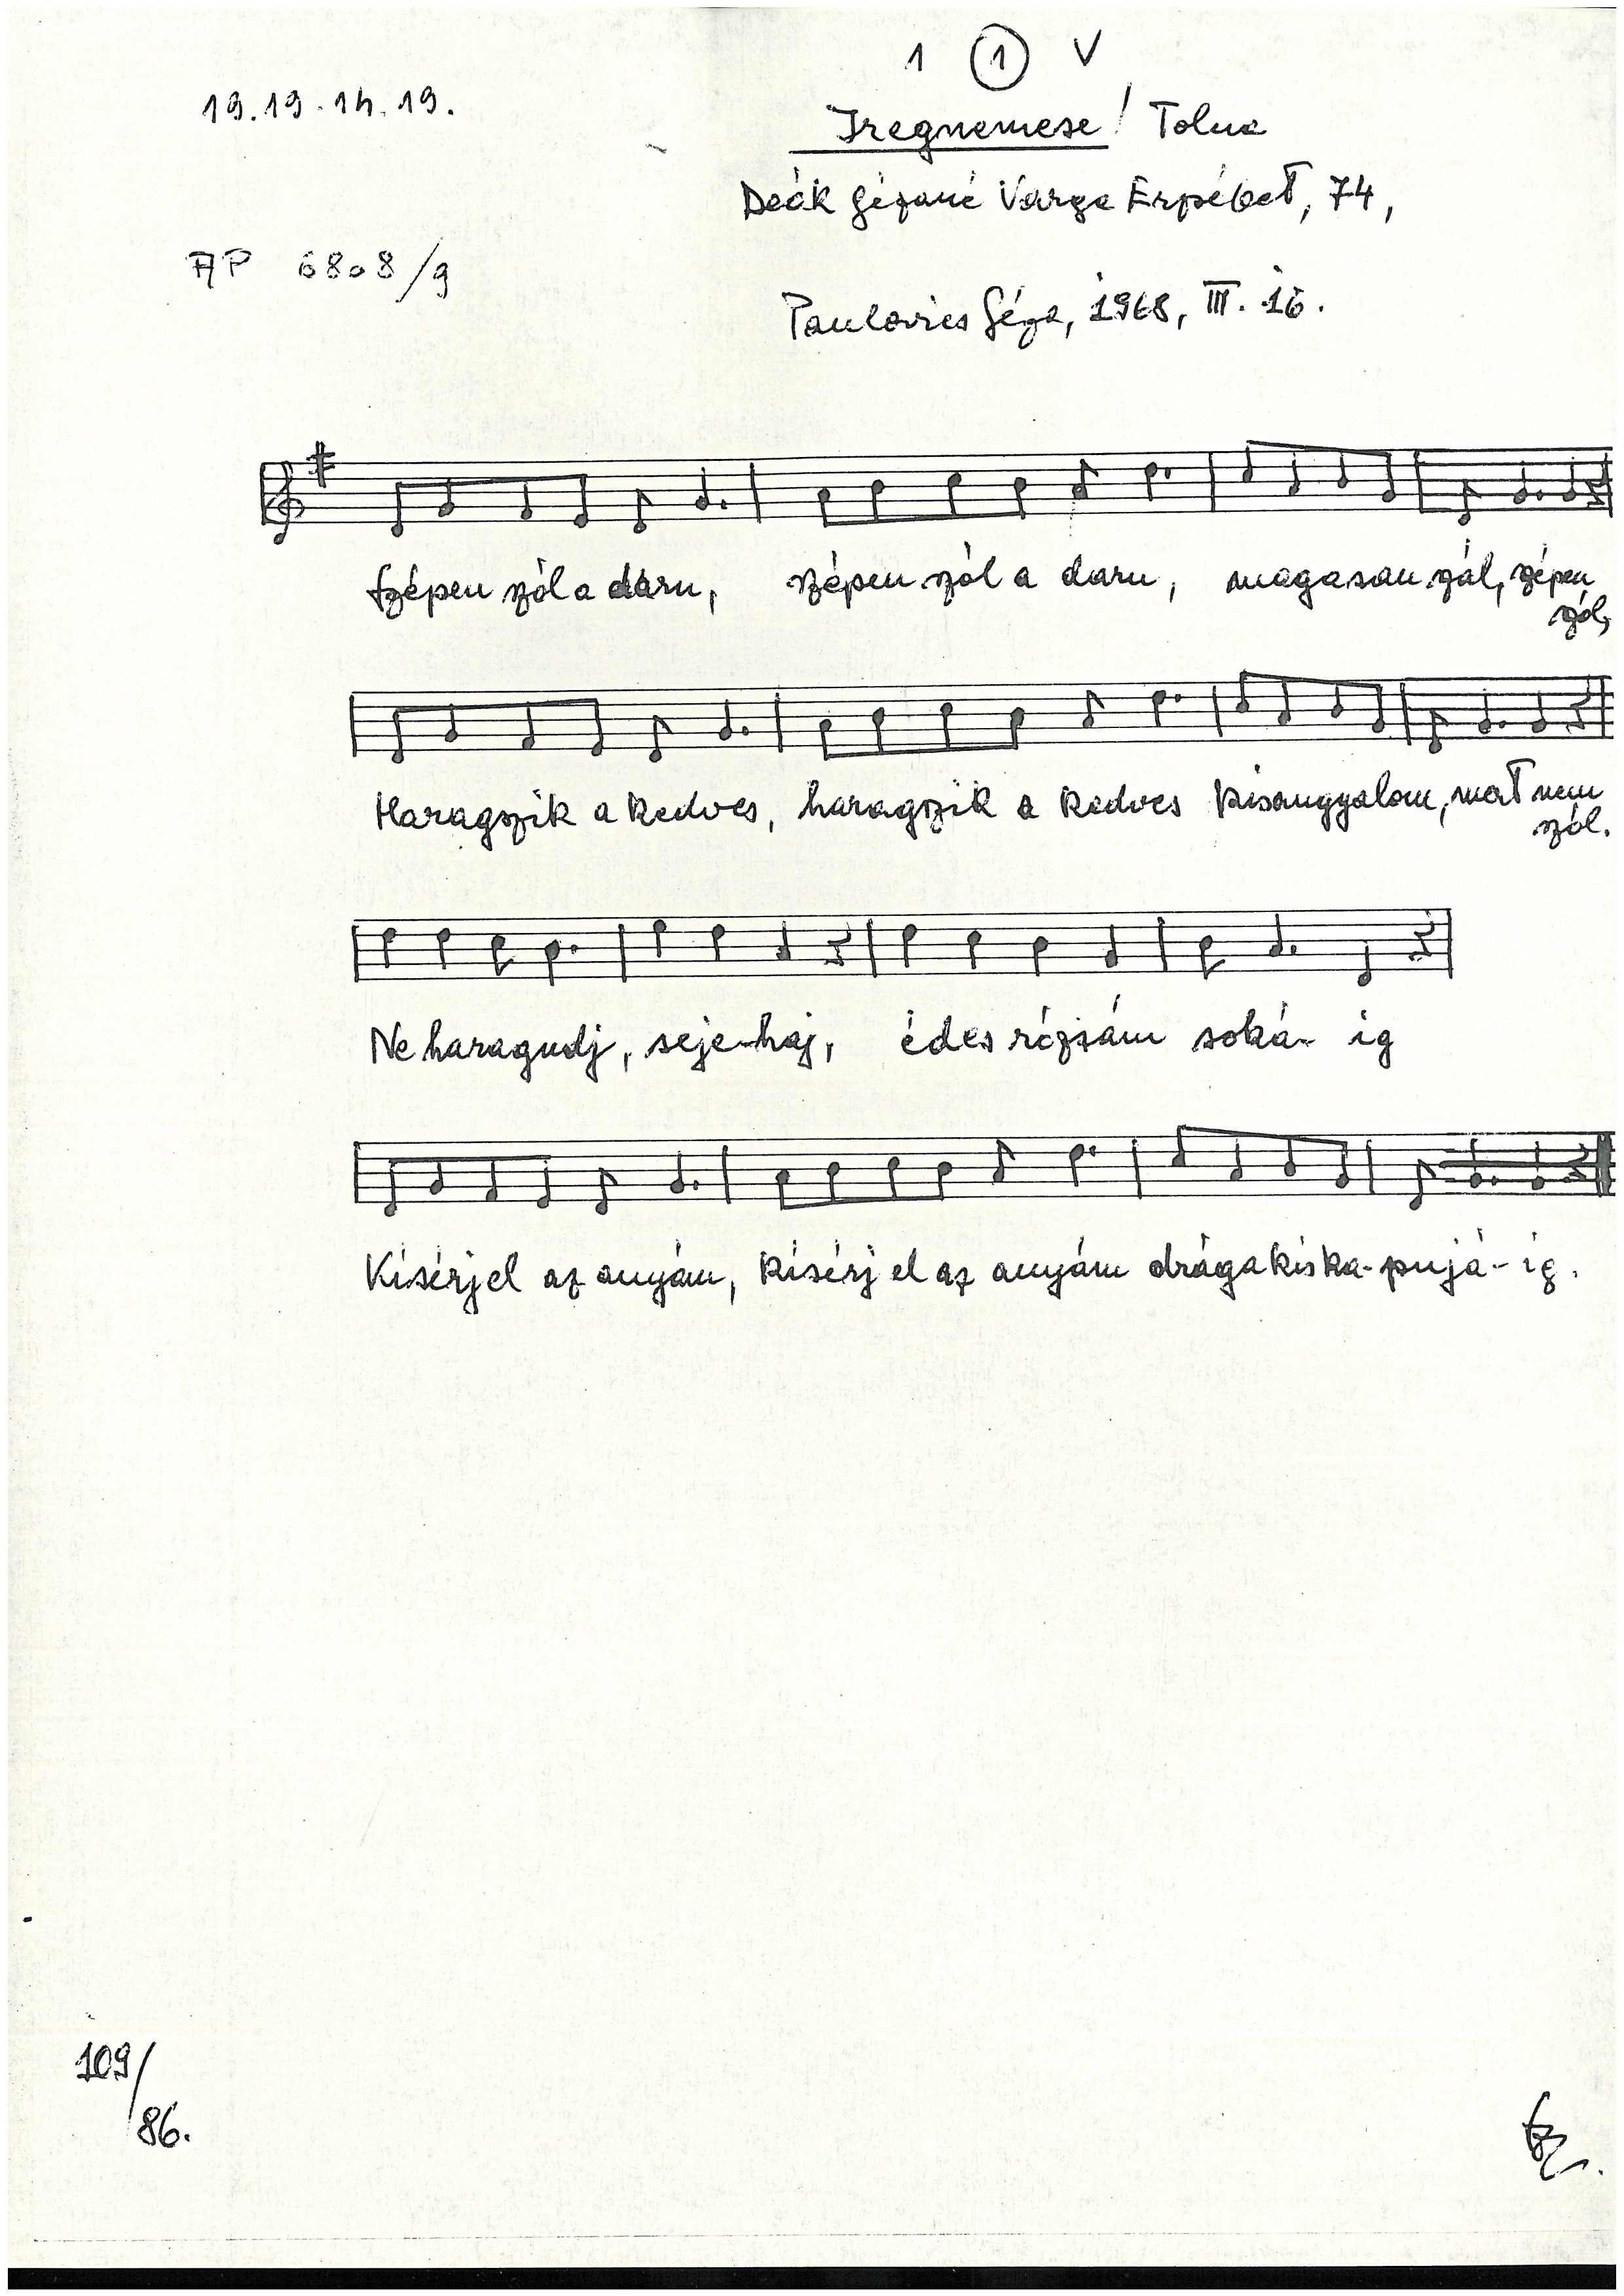 1 1 V
19.19.14.19.
Iregnemese / Tolna
Deák Gézáné Varga Erzsébet, 74,
AP 6808/g
Paulovics Géza, 1968, III. 16.
Szépen szól a daru, szépen szól a daru, magasan szál, szépen
szól,
Haragszik a kedves, haragszik a kedves kisangyalom, mert nem
szól.
Ne haragudj, seje-haj, édes rózsám soká- ig
Kisérj el az anyám, kisérj el az anyám drága kis ka-pujá-ig.
109/
86.